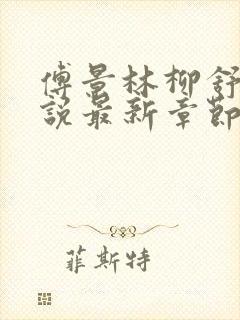 傅景林柳舒
說最新章節
菲斯特